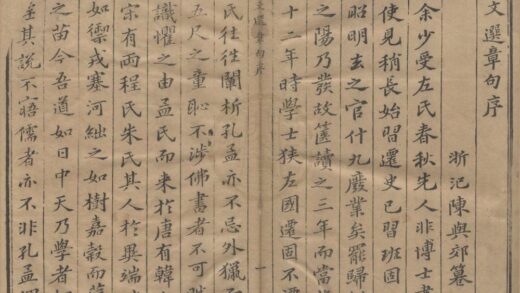 文選章句序
浙汜陳與郊篹
余少受左氏春秋先人非博士書
使見稍長始習遷史已習班固
昭明玄之官什九廢業矣罷歸
之陽乃發故篋讀之三年而當
十二年時學士狹左國遷固不
文選章句序
一
民往往闡析孔孟亦不忌外獵
五尺之童恥不涉佛書者不可
識懼之由孟氏而來於唐有韓
宋有兩程氏朱氏其人於異端
如禦戎塞河絀之如樹嘉穀而
之苗今吾道如日中天乃學者
至其說不寤儒者亦不非孔孟